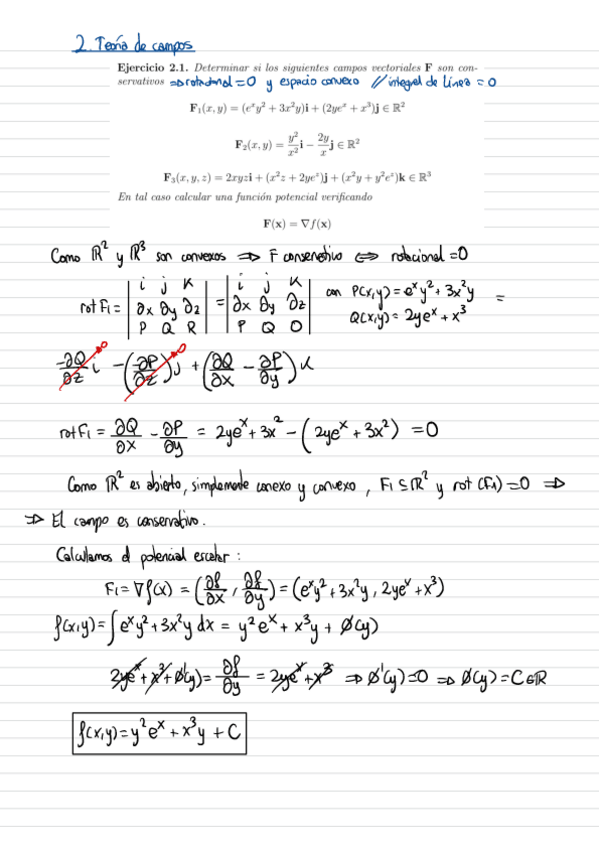 2. Teoría de campos
Ejercicio 2.1. Determinar si los siguientes campos vectoriales F son con-
servativos ⇒ rotacional = 0 y espacio convexo // integral de línea = 0
F₁(x, y) = (eˣy² + 3x²y)i + (2yeˣ + x³)j ∈ ℝ²
F₂(x, y) = y²/x² i − 2y/x j ∈ ℝ²
F₃(x, y, z) = 2xyzi + (x²z + 2yeᶻ)j + (x²y + y²eᶻ)k ∈ ℝ³
En tal caso calcular una función potencial verificando
F(x) = ∇f(x)
Como ℝ² y ℝ³ son convexos ⇒ F conservativo ⇔ rotacional = 0
rot F₁ = | i j K ; ∂x ∂y ∂z ; P Q R | = | i j K ; ∂x ∂y ∂z ; P Q 0 | con P(x,y) = eˣy² + 3x²y =
Q(x,y) = 2yeˣ + x³
-∂Q/∂z i - (-∂P/∂z) j + (∂Q/∂x - ∂P/∂y) K
rot F₁ = ∂Q/∂x - ∂P/∂y = 2yeˣ + 3x² - (2yeˣ + 3x²) = 0
Como ℝ² es abierto, simplemente conexo y convexo, F₁ ⊆ ℝ² y rot (F₁) = 0 ⇒
⇒ El campo es conservativo.
Calculamos el potencial escalar:
F₁ = ∇f(x) = (∂f/∂x, ∂f/∂y) = (eˣy² + 3x²y, 2yeˣ + x³)
f(x,y) = ∫ eˣy² + 3x²y dx = y²eˣ + x³y + Ø(y)
2yeˣ + x³ + Ø'(y) = ∂f/∂y = 2yeˣ + x³ ⇒ Ø'(y) = 0 ⇒ Ø(y) = C ∈ ℝ
f(x,y) = y²eˣ + x³y + C